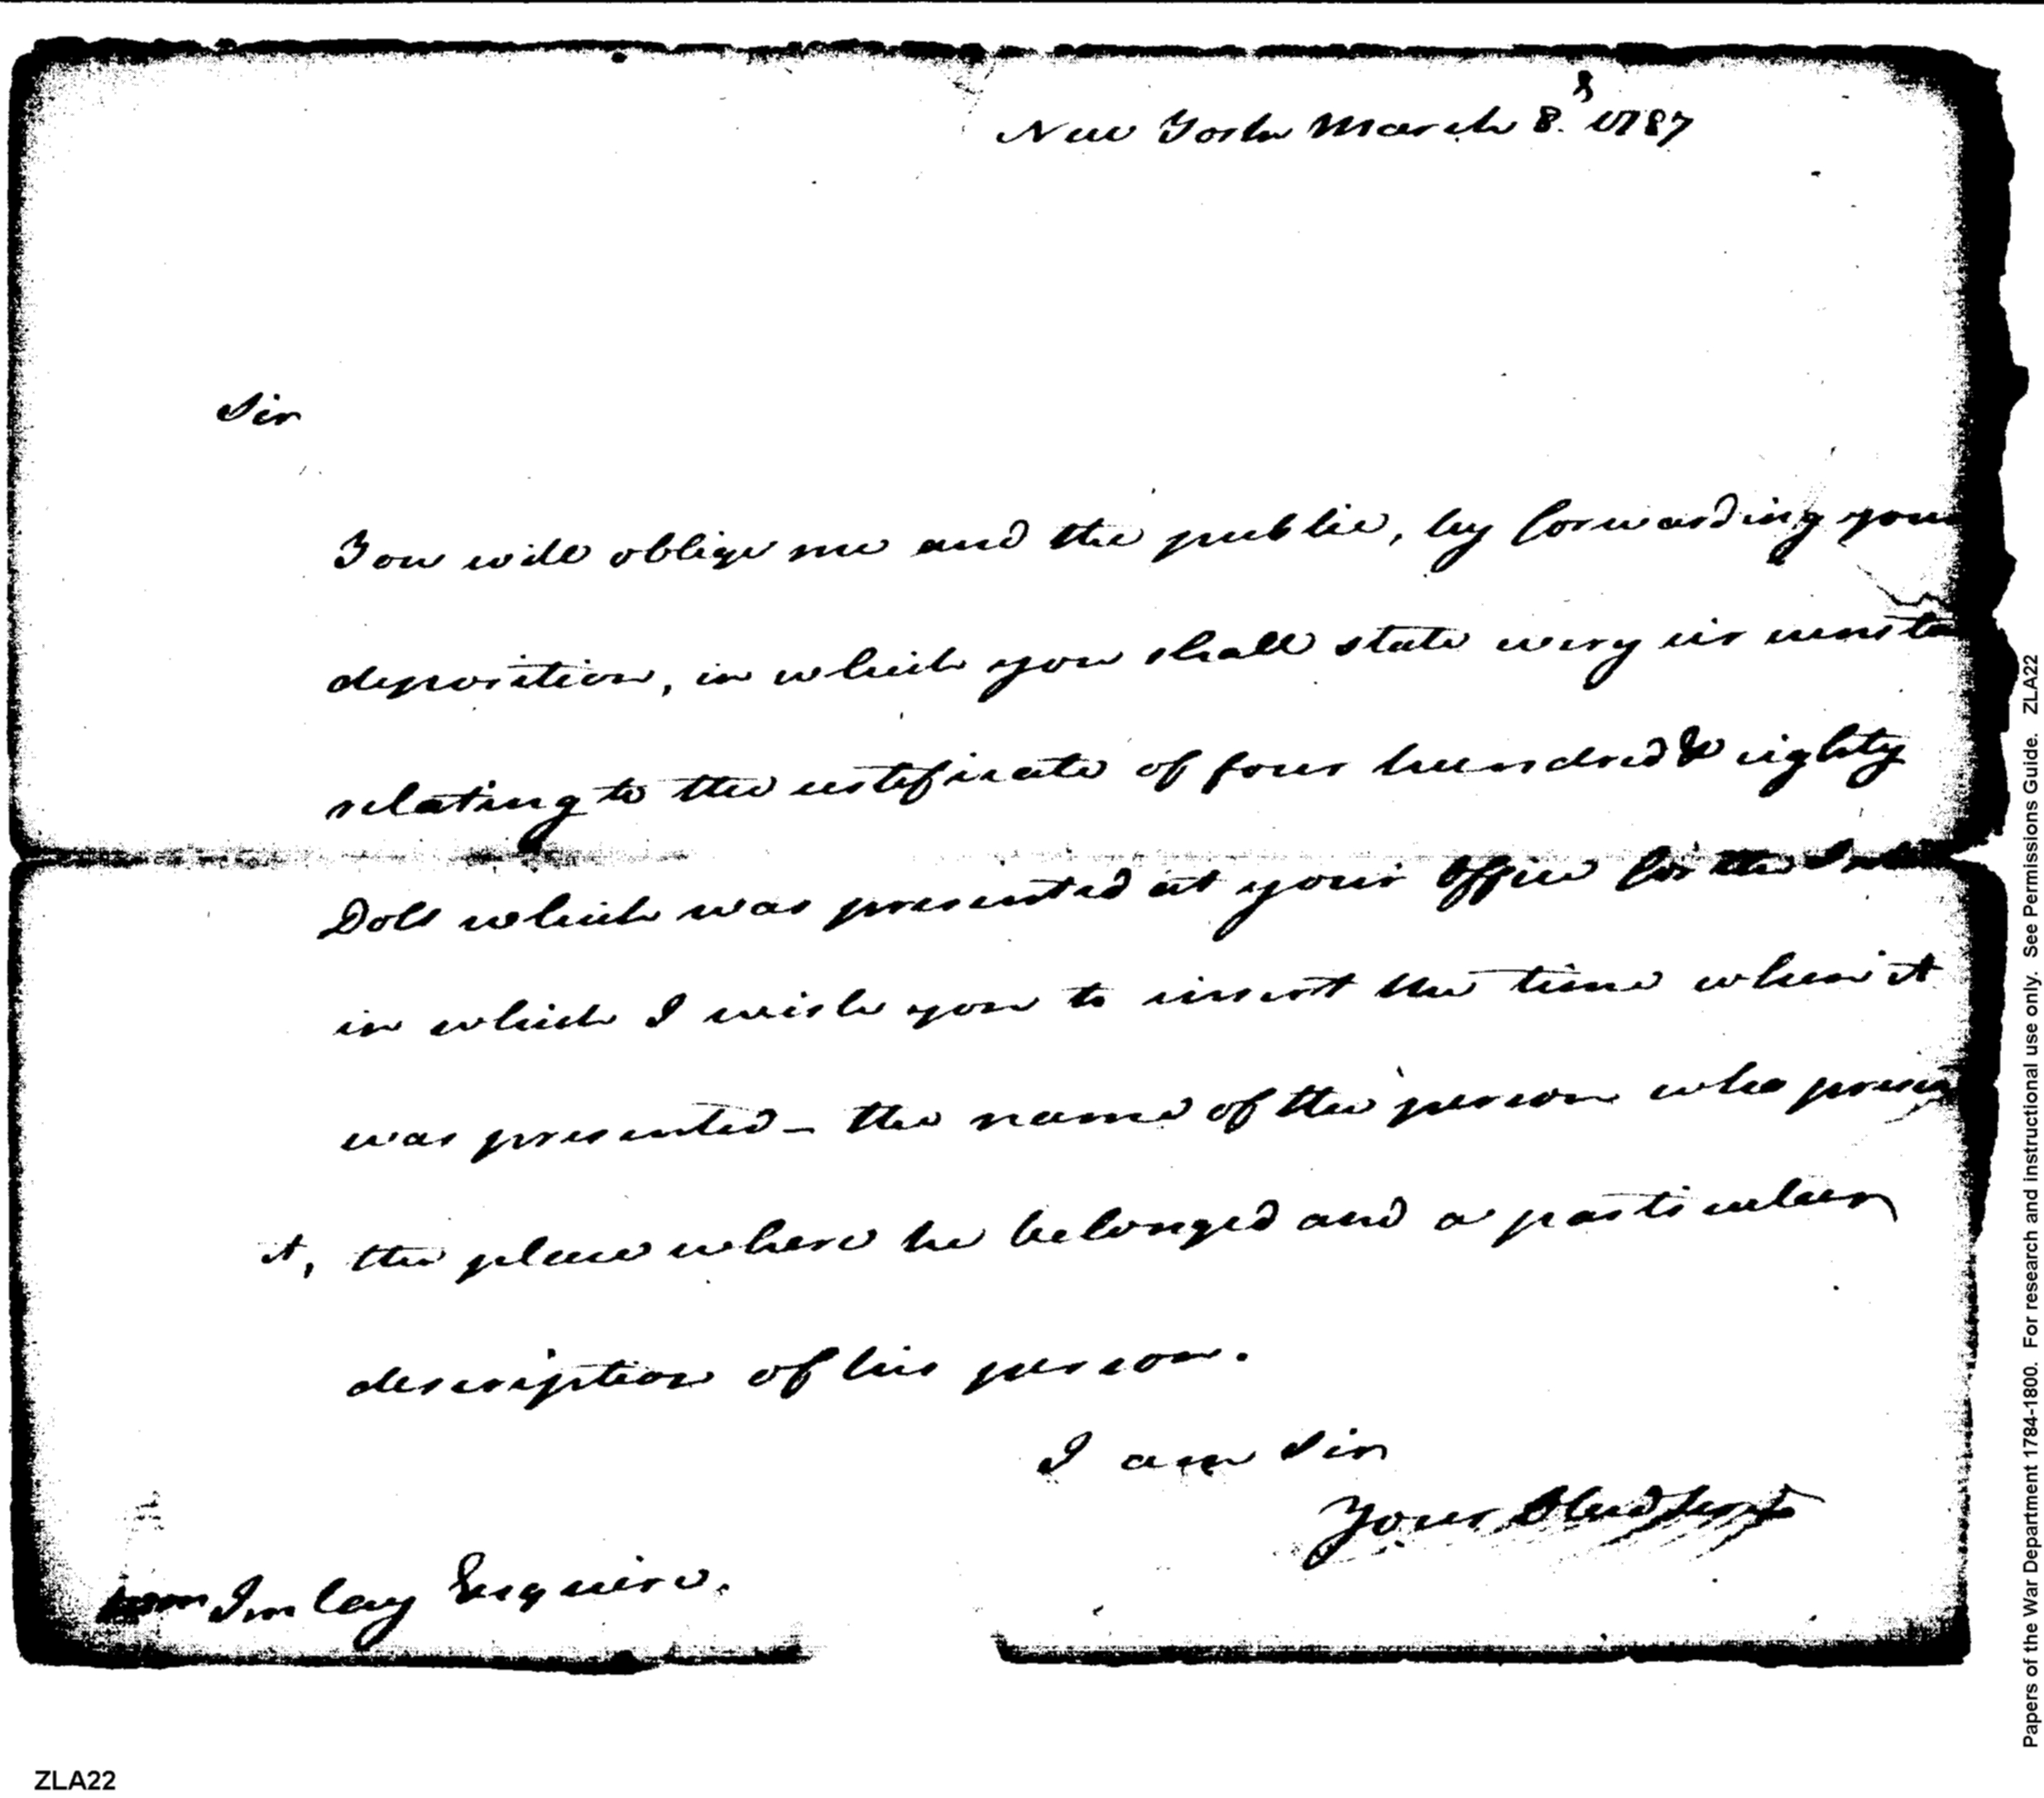 New York March 8. 1787
Sir
You will oblige me and the public, by forwarding your
deposition, in which you shall state every circumsta
relating to the certificate of four hundred & eighty
Dolls which was presented at your office for the
in which I wish you to insert the time when it
was presented — the name of the person who presen
it, the place where he belonged and a particular
description of his person.
I am Sir
Your Obed Serv
Wm Imlay Esquire.
ZLA22
Papers of the War Department 1784-1800. For research and instructional use only. See Permissions Guide. ZLA22